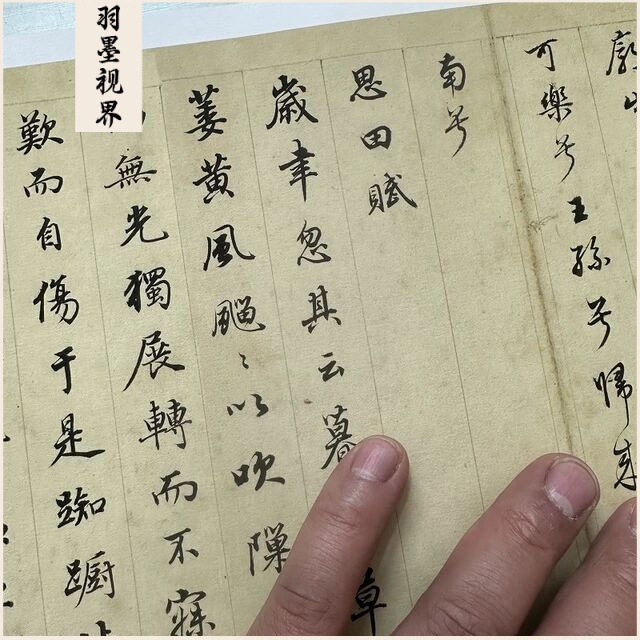 可樂兮王孫兮歸来
南兮
思田賦
歲聿忽其云暮草
萋黄風颸〻以吹隰
無光獨展轉而不寐
歎而自傷于是踟躕
羽墨视界